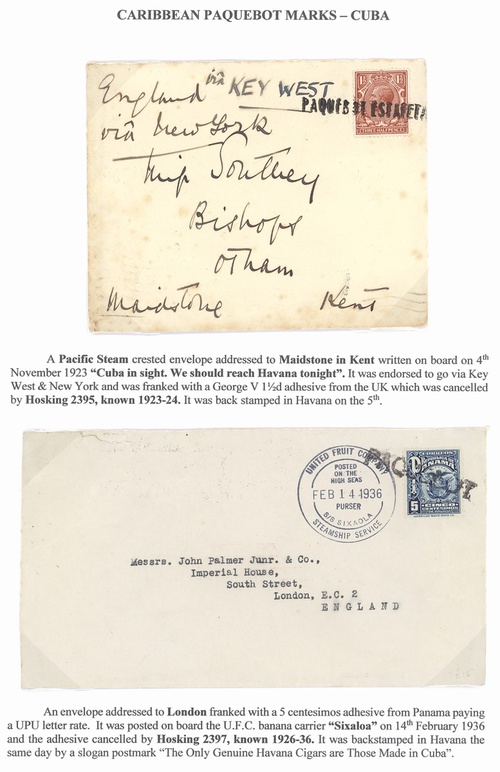 CARIBBEAN PAQUEBOT MARKS – CUBA
England via KEY WEST
via New York
PAQUEBOT ESTAFETA
THREE HALFPENCE
Miss Southey
Bishops
Otham
Maidstone Kent
A Pacific Steam crested envelope addressed to Maidstone in Kent written on board on 4th
November 1923 “Cuba in sight. We should reach Havana tonight”. It was endorsed to go via Key
West & New York and was franked with a George V 1½d adhesive from the UK which was cancelled
by Hosking 2395, known 1923-24. It was back stamped in Havana on the 5th.
UNITED FRUIT COMPANY
POSTED
ON THE
HIGH SEAS
FEB 14 1936
PURSER
S/S SIXAOLA
STEAMSHIP SERVICE
PAQUEBOT
PANAMA
5
CENTESIMOS
Messrs. John Palmer Junr. & Co.,
Imperial House,
South Street,
London, E.C. 2
ENGLAND
An envelope addressed to London franked with a 5 centesimos adhesive from Panama paying
a UPU letter rate. It was posted on board the U.F.C. banana carrier “Sixaloa” on 14th February 1936
and the adhesive cancelled by Hosking 2397, known 1926-36. It was backstamped in Havana the
same day by a slogan postmark “The Only Genuine Havana Cigars are Those Made in Cuba”.